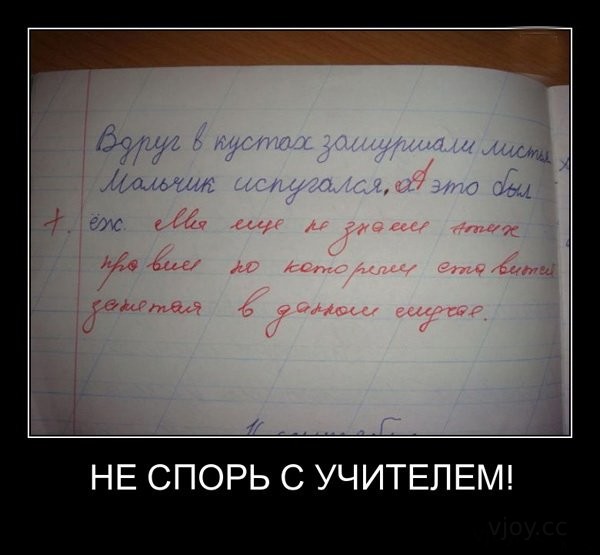 Вдруг в кустах зашуршали листья
Мальчик испугался, а А это был
ёж. Мы еще не знаем этих
правил по которым ставится
запятая в данном случае.
НЕ СПОРЬ С УЧИТЕЛЕМ!
vjoy.cc